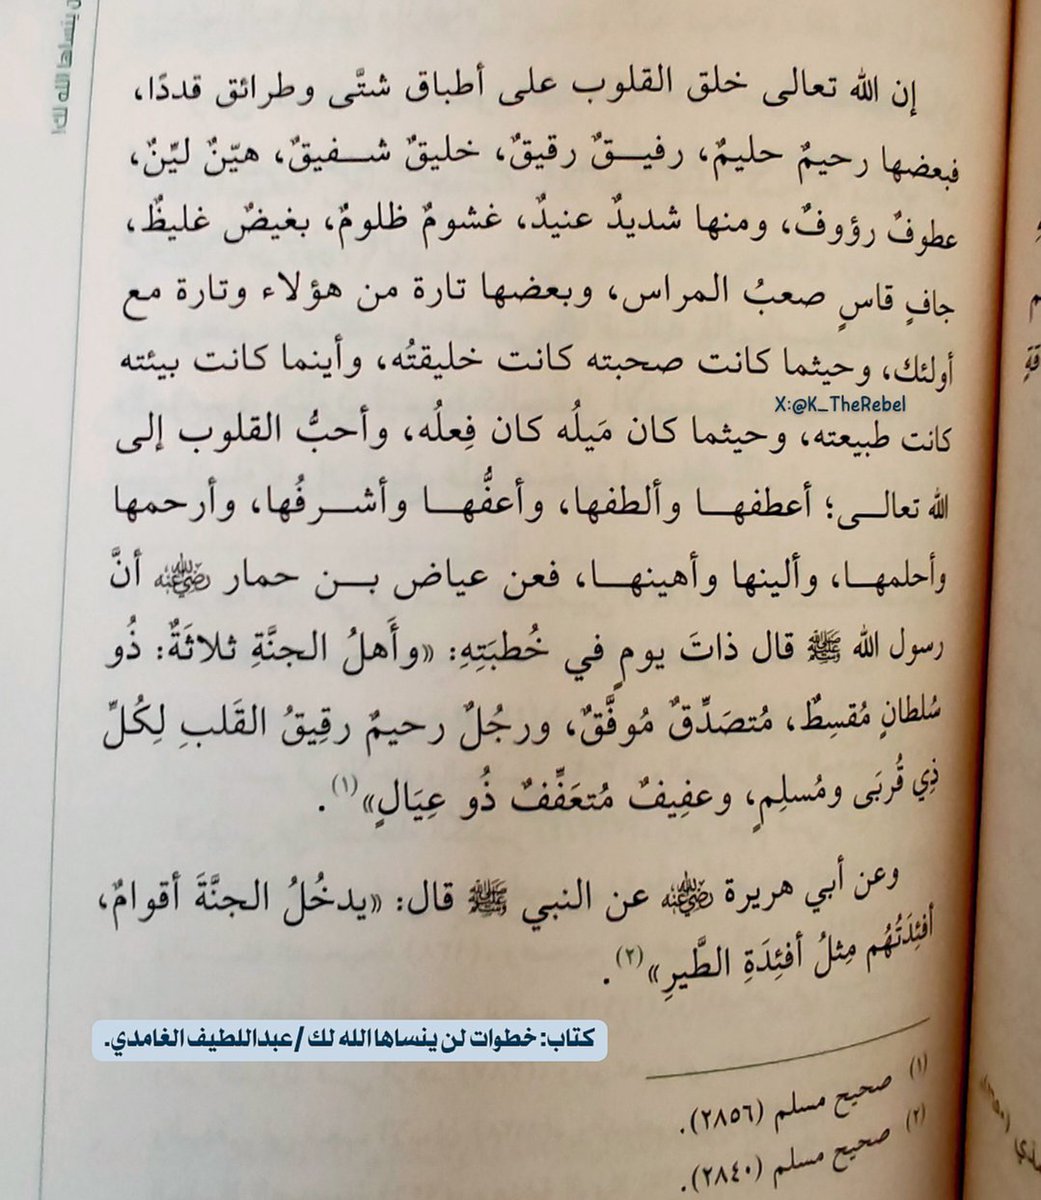 ن ينساها الله لك!
إن الله تعالى خلق القلوب على أطباق شتَّى وطرائق قددًا،
فبعضها رحيمٌ حليمٌ، رفيـــقٌ رقيقٌ، خليقٌ شـــفيقٌ، هيّنٌ ليّنٌ،
عطوفٌ رؤوفٌ، ومنها شديدٌ عنيدٌ، غشومٌ ظلومٌ، بغيضٌ غليظٌ،
جافٍ قاسٍ صعبُ المراس، وبعضها تارة من هؤلاء وتارة مع
أولئك، وحيثما كانت صحبته كانت خليقتُه، وأينما كانت بيئته
X:@K_TheRebel
كانت طبيعته، وحيثما كان مَيلُه كان فِعلُه، وأحبُّ القلوب إلى
الله تعالـــى؛ أعطفهـــا وألطفها، وأعفُّهـــا وأشـــرفُها، وأرحمها
وأحلمهـا، وألينها وأهينهـــا، فعن عياض بـــن حمار رضي الله عنه أنَّ
رسول الله ﷺ قال ذاتَ يومٍ في خُطبَتِهِ: «وأَهلُ الجنَّةِ ثلاثَةٌ: ذُو
سُلطانٍ مُقسِطٌ، مُتصَدِّقٌ مُوفَّقٌ، ورجُلٌ رحيمٌ رقِيقُ القَلبِ لِكُلِّ
ذِي قُربَى ومُسلِمٍ، وعفِيفٌ مُتعَفِّفٌ ذُو عِيَالٍ»(١).
وعن أبي هريرة رضي الله عنه عن النبي ﷺ قال: «يدخُلُ الجنَّةَ أقوامٌ،
أفئِدَتُهُم مِثلُ أفئِدَةِ الطَّيرِ»(٢).
كتاب: خطوات لن ينساها الله لك / عبداللطيف الغامدي.
(١) صحيح مسلم (٢٨٥٦).
(٢) صحيح مسلم (٢٨٤٠).